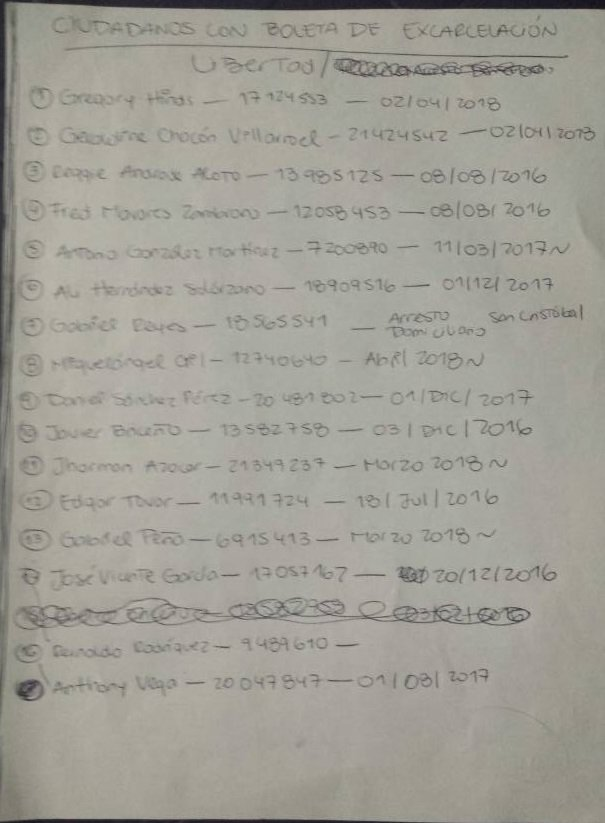 CIUDADANOS CON BOLETA DE EXCARCELACIÓN
Libertad /
① Gregory Hinds — 17124553 — 02/04/2018
② Chacón Villarroel - 21424542 — 02/04/2018
③ Enrique Andrade — 13985125 — 08/08/2016
④ Fred Mavares Zambrano — 12058453 — 08/08/2016
⑤ Antonio González Martínez — 7200890 — 11/03/2017 ~
⑥ Ali Hernández Solórzano — 18909516 — 01/12/2017
⑦ Gabriel Reyes — 18565541 — Arresto Domiciliario San Cristóbal
⑧ Miguelángel — 12740640 - Abril 2018 ~
⑨ Daniel Sánchez Pérez - 20481802 — 01/Dic/2017
⑩ Javier Briceño — 13582758 — 03/Dic/2016
⑪ Jhorman Azocar — 21349237 — Marzo 2018 ~
⑫ Edgar Tovar — 11991724 — 18/Jul/2016
⑬ Gabriel Peña — 6915413 — Marzo 2018 ~
José Vicente García — 17057167 — 20/12/2016
Reinaldo Rodríguez — 9489610 —
Anthony Vega — 20047847 — 01/08/2017